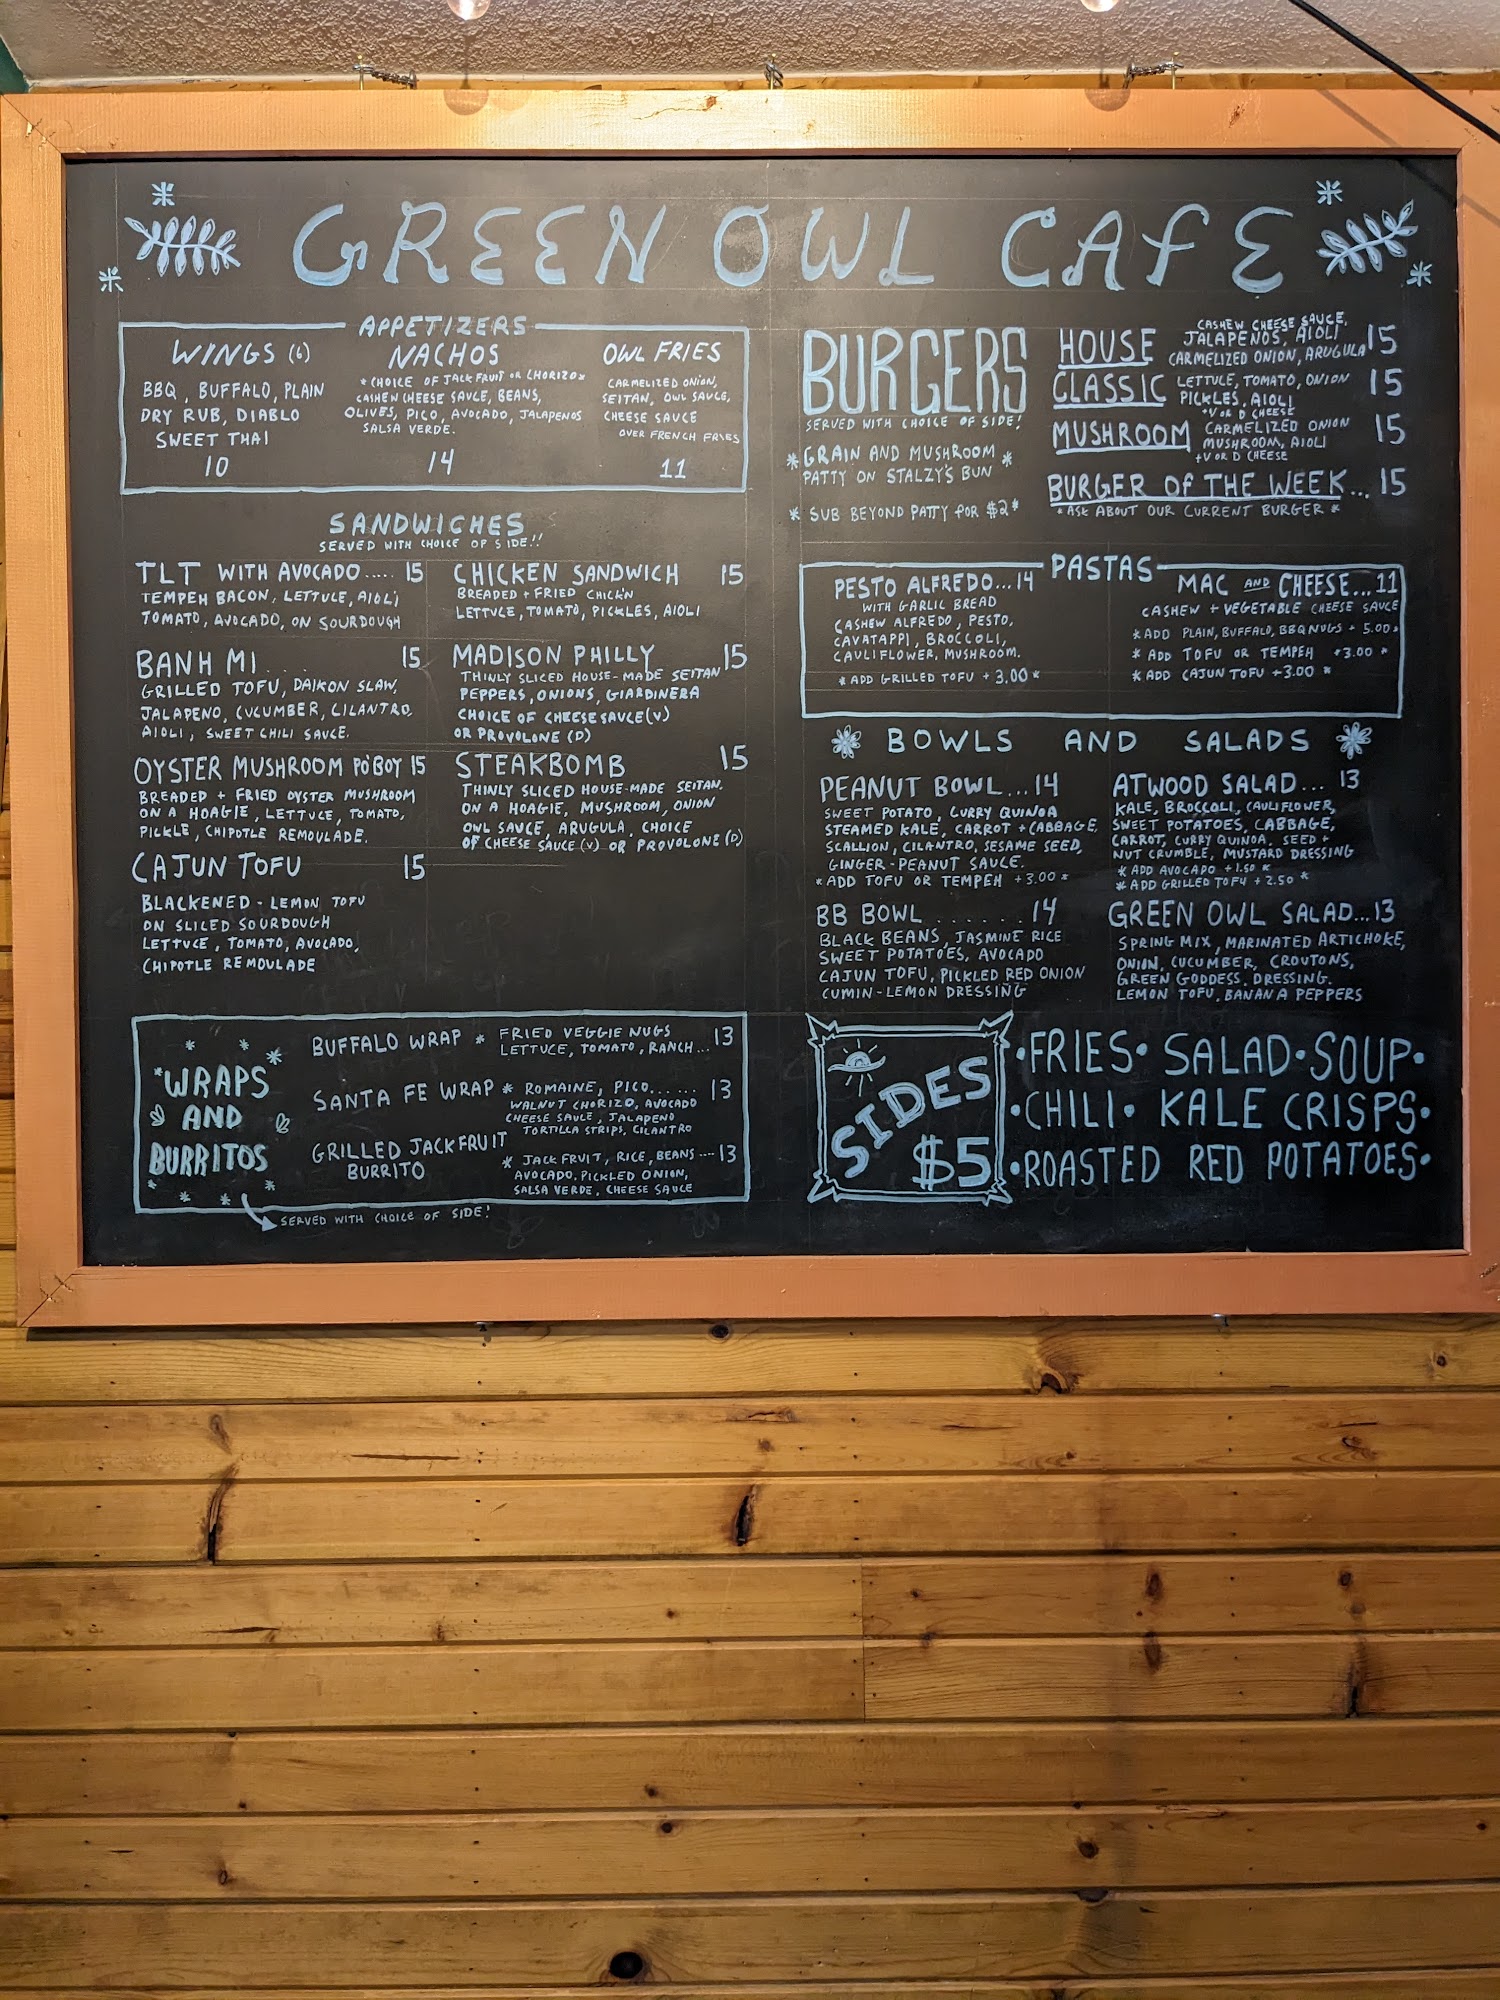 GREEN OWL CAFE
APPETIZERS
WINGS (6)
BBQ, BUFFALO, PLAIN
DRY RUB, DIABLO
SWEET THAI
10
NACHOS
*CHOICE OF JACKFRUIT OR CHORIZO*
CASHEW CHEESE SAUCE, BEANS,
OLIVES, PICO, AVOCADO, JALAPENOS
SALSA VERDE.
14
OWL FRIES
CARMELIZED ONION,
SEITAN, OWL SAUCE,
CHEESE SAUCE
OVER FRENCH FRIES
11
SANDWICHES
SERVED WITH CHOICE OF SIDE!!
TLT WITH AVOCADO..... 15
TEMPEH BACON, LETTUCE, AIOLI
TOMATO, AVOCADO, ON SOURDOUGH
BANH MI.... 15
GRILLED TOFU, DAIKON SLAW,
JALAPENO, CUCUMBER, CILANTRO,
AIOLI, SWEET CHILI SAUCE.
OYSTER MUSHROOM PO'BOY 15
BREADED + FRIED OYSTER MUSHROOM
ON A HOAGIE, LETTUCE, TOMATO,
PICKLE, CHIPOTLE REMOULADE.
CAJUN TOFU 15
BLACKENED-LEMON TOFU
ON SLICED SOURDOUGH
LETTUCE, TOMATO, AVOCADO,
CHIPOTLE REMOULADE
CHICKEN SANDWICH 15
BREADED + FRIED CHICK'N
LETTUCE, TOMATO, PICKLES, AIOLI
MADISON PHILLY 15
THINLY SLICED HOUSE-MADE SEITAN
PEPPERS, ONIONS, GIARDINERA
CHOICE OF CHEESE SAUCE (V)
OR PROVOLONE (D)
STEAKBOMB 15
THINLY SLICED HOUSE-MADE SEITAN.
ON A HOAGIE, MUSHROOM, ONION
OWL SAUCE, ARUGULA, CHOICE
OF CHEESE SAUCE (V) OR PROVOLONE (D)
*WRAPS
AND
BURRITOS
BUFFALO WRAP * FRIED VEGGIE NUGS 13
LETTUCE, TOMATO, RANCH...
SANTA FE WRAP * ROMAINE, PICO...... 13
WALNUT CHORIZO, AVOCADO
CHEESE SAUCE, JALAPENO
TORTILLA STRIPS, CILANTRO
GRILLED JACKFRUIT
BURRITO
* JACKFRUIT, RICE, BEANS....13
AVOCADO, PICKLED ONION,
SALSA VERDE, CHEESE SAUCE
SERVED WITH CHOICE OF SIDE!
BURGERS
SERVED WITH CHOICE OF SIDE!
*GRAIN AND MUSHROOM *
PATTY ON STALZY'S BUN
* SUB BEYOND PATTY FOR $2*
HOUSE 15
CASHEW CHEESE SAUCE,
JALAPENOS, AIOLI
CARMELIZED ONION, ARUGULA
CLASSIC 15
LETTUCE, TOMATO, ONION
PICKLES, AIOLI
+V OR D CHEESE
MUSHROOM 15
CARMELIZED ONION
MUSHROOM, AIOLI
+V OR D CHEESE
BURGER OF THE WEEK... 15
*ASK ABOUT OUR CURRENT BURGER *
PASTAS
PESTO ALFREDO...14
WITH GARLIC BREAD
CASHEW ALFREDO, PESTO,
CAVATAPPI, BROCCOLI,
CAULIFLOWER, MUSHROOM.
*ADD GRILLED TOFU + 3.00 *
MAC AND CHEESE...11
CASHEW + VEGETABLE CHEESE SAUCE
*ADD PLAIN, BUFFALO, BBQ NUGS + 5.00*
* ADD TOFU OR TEMPEH +3.00 *
* ADD CAJUN TOFU +3.00 *
BOWLS AND SALADS
PEANUT BOWL...14
SWEET POTATO, CURRY QUINOA
STEAMED KALE, CARROT + CABBAGE,
SCALLION, CILANTRO, SESAME SEED,
GINGER-PEANUT SAUCE.
*ADD TOFU OR TEMPEH +3.00 *
BB BOWL....... 14
BLACK BEANS, JASMINE RICE
SWEET POTATOES, AVOCADO
CAJUN TOFU, PICKLED RED ONION
CUMIN-LEMON DRESSING
ATWOOD SALAD... 13
KALE, BROCCOLI, CAULIFLOWER,
SWEET POTATOES, CABBAGE,
CARROT, CURRY QUINOA, SEED +
NUT CRUMBLE, MUSTARD DRESSING
* ADD AVOCADO +1.50 *
* ADD GRILLED TOFU + 2.50 *
GREEN OWL SALAD...13
SPRING MIX, MARINATED ARTICHOKE,
ONION, CUCUMBER, CROUTONS,
GREEN GODDESS DRESSING.
LEMON TOFU, BANANA PEPPERS
SIDES
$5
•FRIES• SALAD•SOUP•
•CHILI• KALE CRISPS•
•ROASTED RED POTATOES•